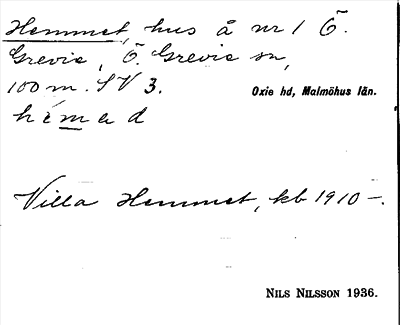 Hemmet, hus å nr 1 Ö.
Grevie, Ö. Grevie sn,
100 m. SV 3.
Oxie hd, Malmöhus län.
Villa Hemmet, kb 1910 –.
NILS NILSSON 1936.